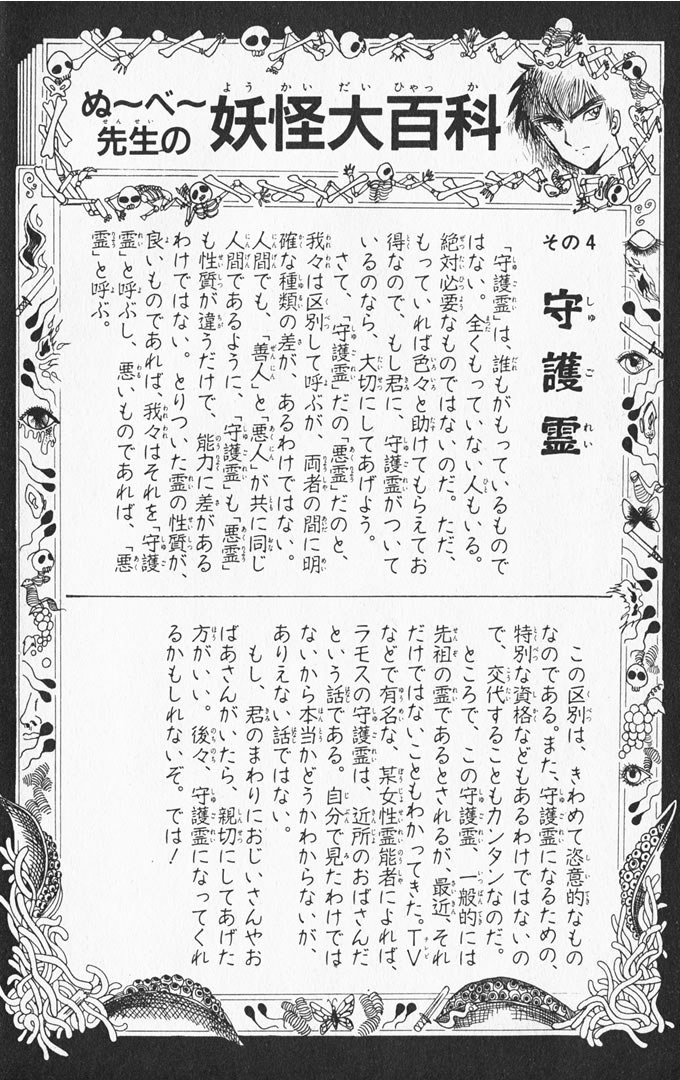 ぬ〜べ〜
先生の
妖怪大百科
その4
守護霊
「守護霊」は、誰もがもっているもので
はない。全くもっていない人もいる。
絶対必要なものではないのだ。ただ、
もっていれば色々と助けてもらえてお
得なので、もし君に、守護霊がついて
いるのなら、大切にしてあげよう。
さて、「守護霊」だの「悪霊」だのと、
我々は区別して呼ぶが、両者の間に明
確な種類の差が、あるわけではない。
人間でも、「善人」と「悪人」が共に同じ
人間であるように、「守護霊」も「悪霊」
も性質が違うだけで、能力に差がある
わけではない。とりついた霊の性質が、
良いものであれば、我々はそれを「守護
霊」と呼ぶし、悪いものであれば、「悪
霊」と呼ぶ。
この区別は、きわめて恣意的なもの
なのである。また、守護霊になるための、
特別な資格などもあるわけではないの
で、交代することもカンタンなのだ。
ところで、この守護霊、一般的には
先祖の霊であるとされるが、最近、それ
だけではないこともわかってきた。TV
などで有名な、某女性霊能者によれば、
ラモスの守護霊は、近所のおばさんだ
という話である。自分で見たわけでは
ないから本当かどうかわからないが、
ありえない話ではない。
もし、君のまわりにおじいさんやお
ばあさんがいたら、親切にしてあげた
方がいい。後々、守護霊になってくれ
るかもしれないぞ。では!